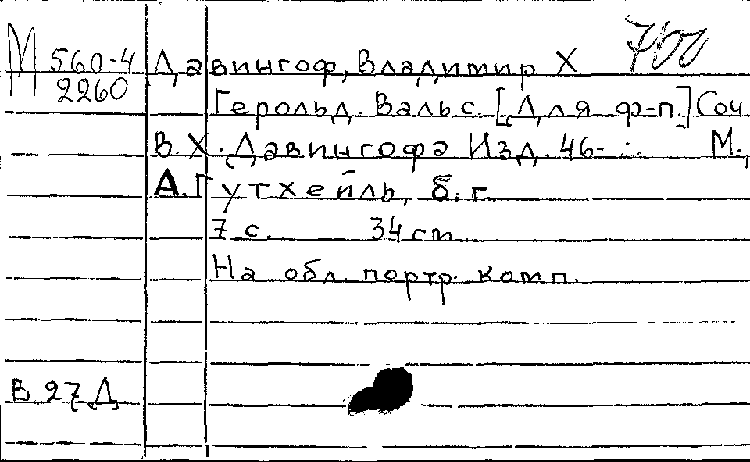 М 560-4 Давингоф, Владимир Х 700
2260
Герольд. Вальс. [Для ф-п.] Соч.
В.Х. Давингофа Изд. 46-е. М.,
А. Гутхейль, б.г.
7 с. 34 cm
На обл. портр. комп.
Е 27 Д